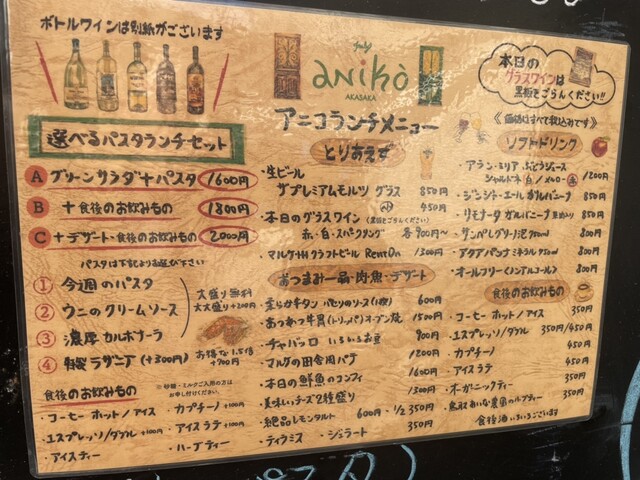 ボトルワインは別紙がございます
選べるパスタランチセット
A グリーンサラダ+パスタ 1600円
B +食後のお飲みもの 1800円
C +デザート・食後のお飲みもの 2000円
パスタは下記よりお選び下さい
① 今週のパスタ
② ウニのクリームソース
③ 濃厚カルボナーラ
④ 特製ラザニア (+300円)
大盛り無料
大大盛り+200円
お得な1.5倍
+700円
食後のお飲みもの
・コーヒー ホット/アイス
・エスプレッソ/ダブル +100円
・アイスティー
・カプチーノ +100円
・アイスラテ +100円
・ハーブティー
anikò
AKASAKA
アニコランチメニュー
とりあえず
・生ビール
ザ・プレミアムモルツ グラス 850円
450円
・本日のグラスワイン (黒板をごらんください)
赤・白・スパークリング 各900円〜
・マルケ州クラフトビール 1300円
おつまみ一品・肉・魚・デザート
600円
1500円
・チャバッタ 900円
・マルケの田舎風パテ 1200円
・本日の鮮魚のコンフィ 1600円
・美味しいチーズ2種盛り 1300円
・絶品レモンタルト 600円・1/2 350円
・ティラミス ・ジェラート 350円
本日の
グラスワインは
黒板をごらんください!!
《価格はすべて税込みです》
ソフトドリンク
・アラン・ミリア ぶどうジュース
シャルドネ 白/メルロー 赤 1200円
・ジンジャーエール ガルバニーナ 850円
・リモナータ ガルバニーナ 850円
・サンペレグリノ 炭 750ml 800円
・アクアパンナ ミネラル 750ml 800円
・オールフリー(ノンアルコール) 800円
食後のお飲みもの
・コーヒー ホット/アイス 350円
・エスプレッソ/ダブル 350円/450円
・カプチーノ 450円
・アイスラテ 450円
・オーガニックティー 350円
350円
食後酒いろいろございます